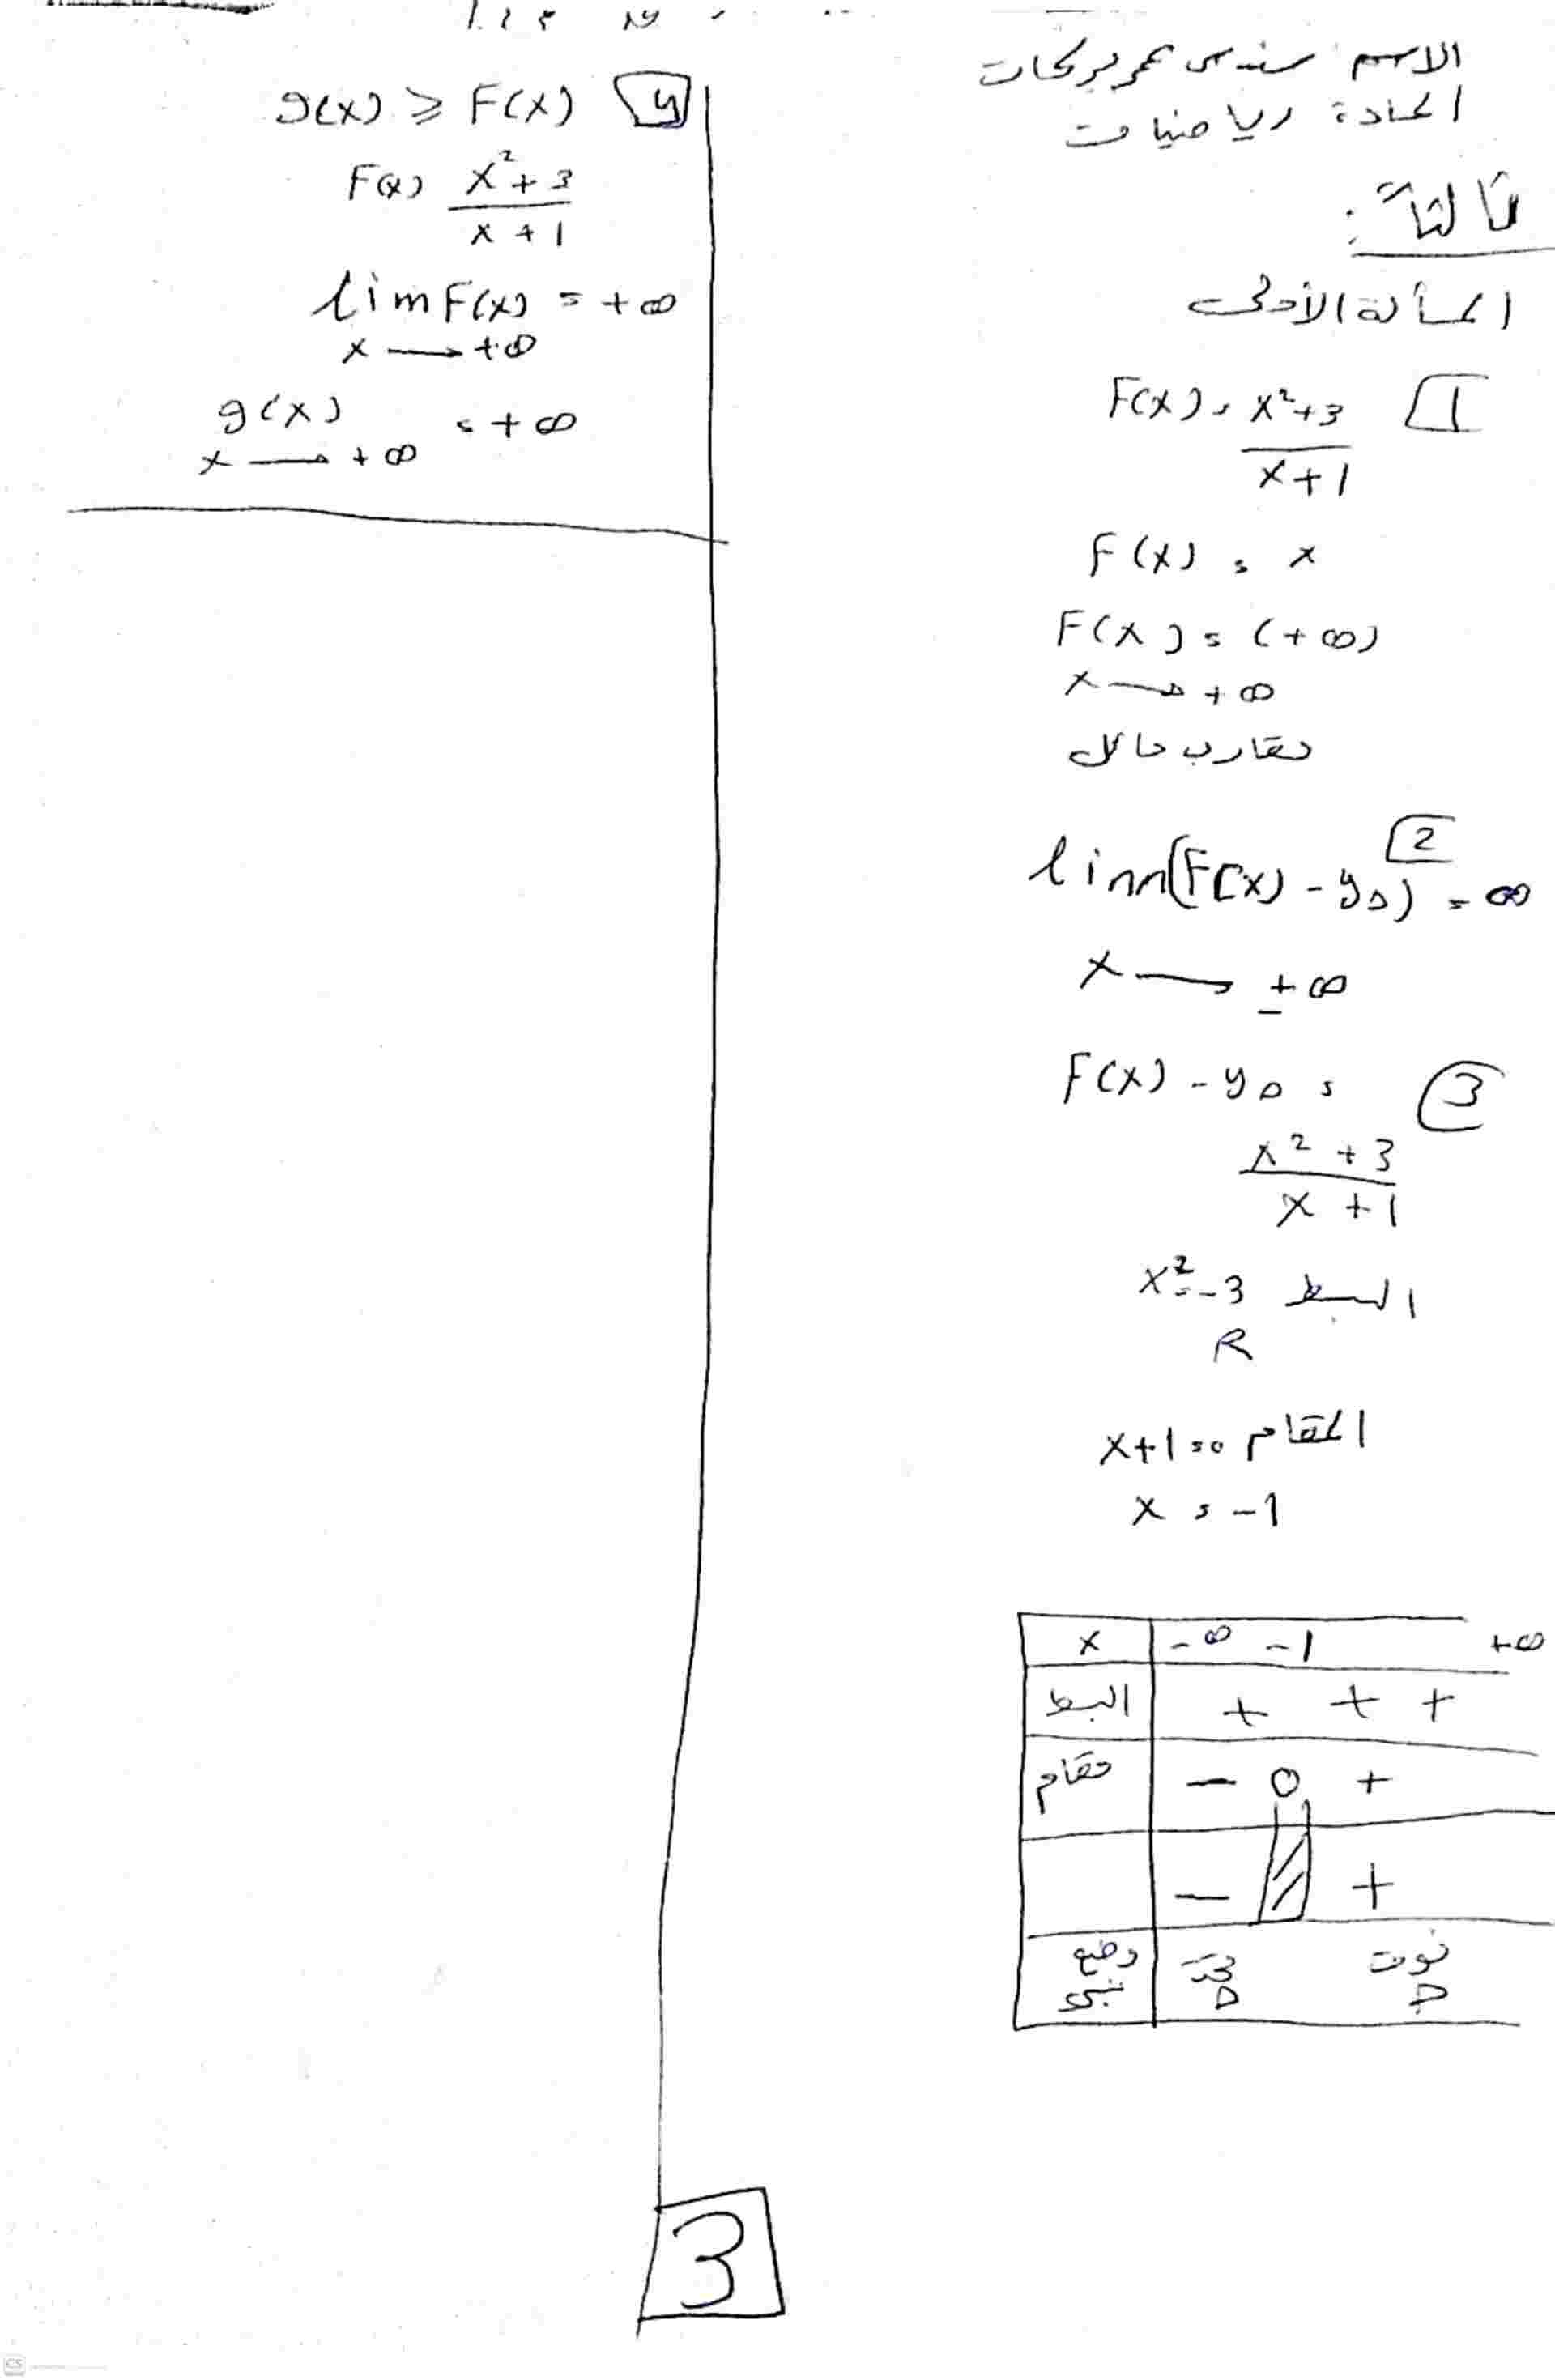 الاسم سندس عمر بركات
المادة رياضيات
ثالثاً :
المسألة الأولى
1 F(x) = x²+3
x+1
F(x) = x
F(x) = (+∞)
x → +∞
مقارب مائل
2
lim(F(x) - yΔ) = ∞
x → ±∞
3 F(x) - yΔ =
x² + 3
x + 1
البسط x² = -3
R
المقام x+1=0
x = -1
x -∞ -1 +∞
البسط + + +
مقام - 0 +
- +
وضع تحت فوق
نسبي Δ Δ
g(x) ⩾ F(x)
F(x) x² + 3
x + 1
lim F(x) = +∞
x → +∞
g(x) = +∞
x → +∞
3
CS